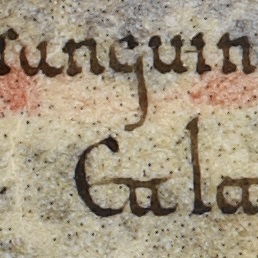 ranguin
Cala